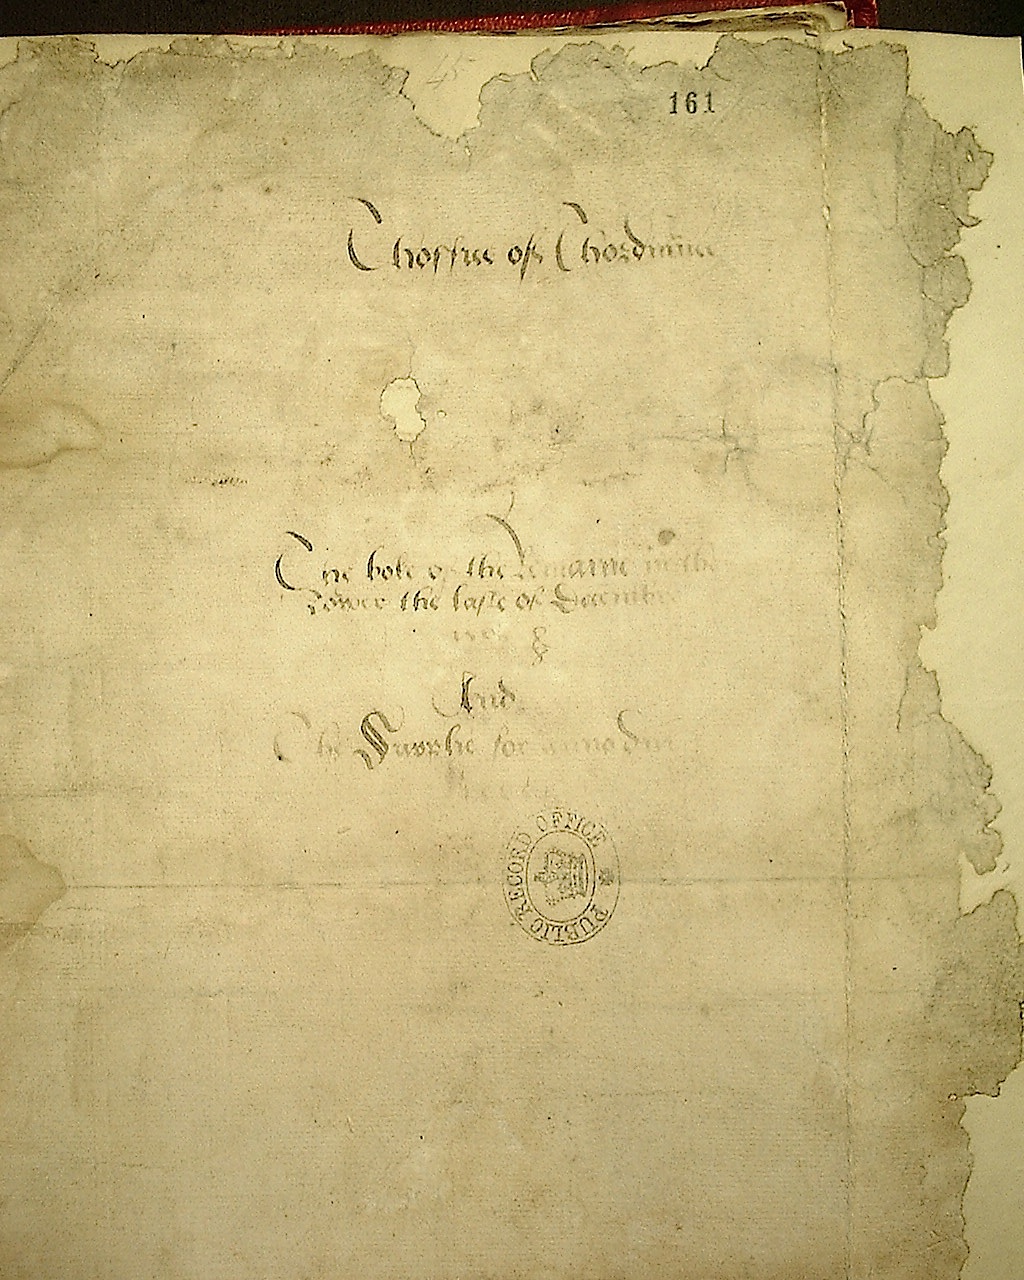 161
Thoffice of Thordinnce
The boke of the Remaine in the
Tower the laste of December
And
The Supplie for anno dni
PUBLIC RECORD OFFICE